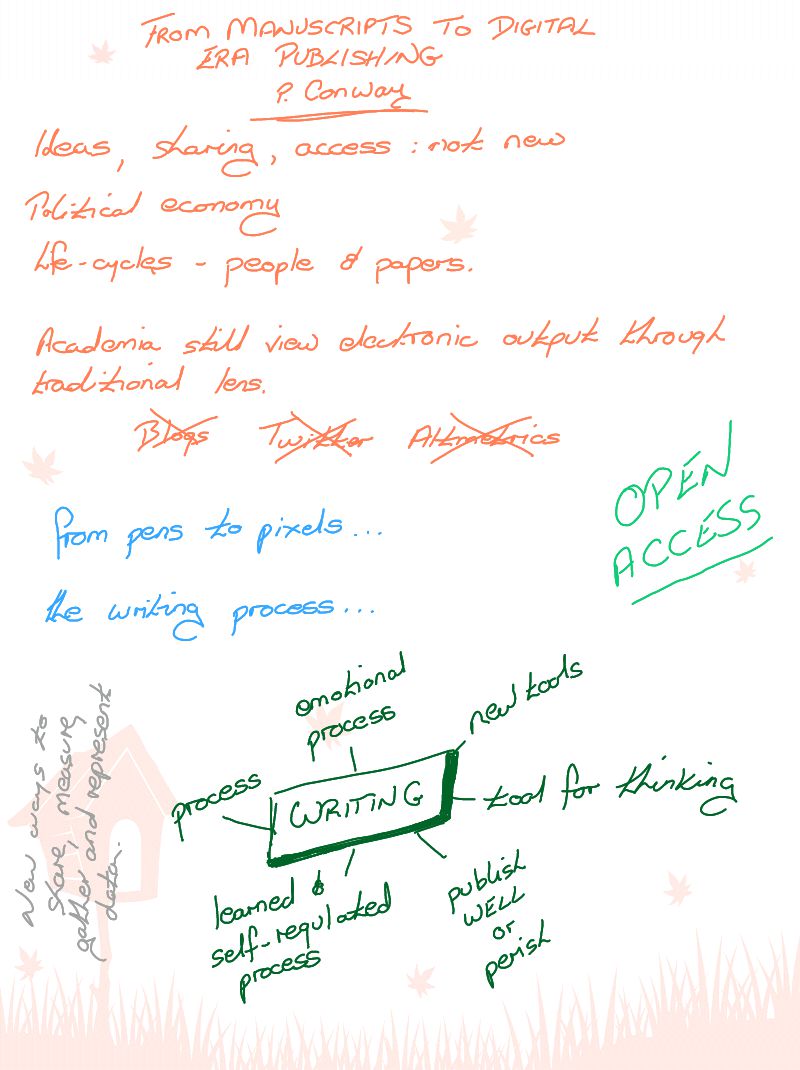 FROM MANUSCRIPTS TO DIGITAL
ERA PUBLISHING
P. Conway
Ideas, sharing, access : not new
Political economy
Life-cycles - people & papers.
Academia still view electronic output through
traditional lens.
Blogs Twitter Altmetrics
OPEN
ACCESS
from pens to pixels...
the writing process...
emotional
process
new tools
process
WRITING
tool for thinking
learned &
self-regulated
process
publish
WELL
or
perish
New ways to
share, measure
gather and represent
data.